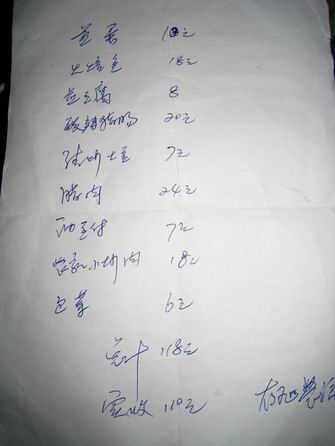 煎蛋 10元
火焙鱼 18元
煎豆腐 8
酸辣猪肠 20元
清炒土豆 7元
腊肉 24元
7元
农家小炒肉 18元
包菜 6元
总计 118元
实收 110元